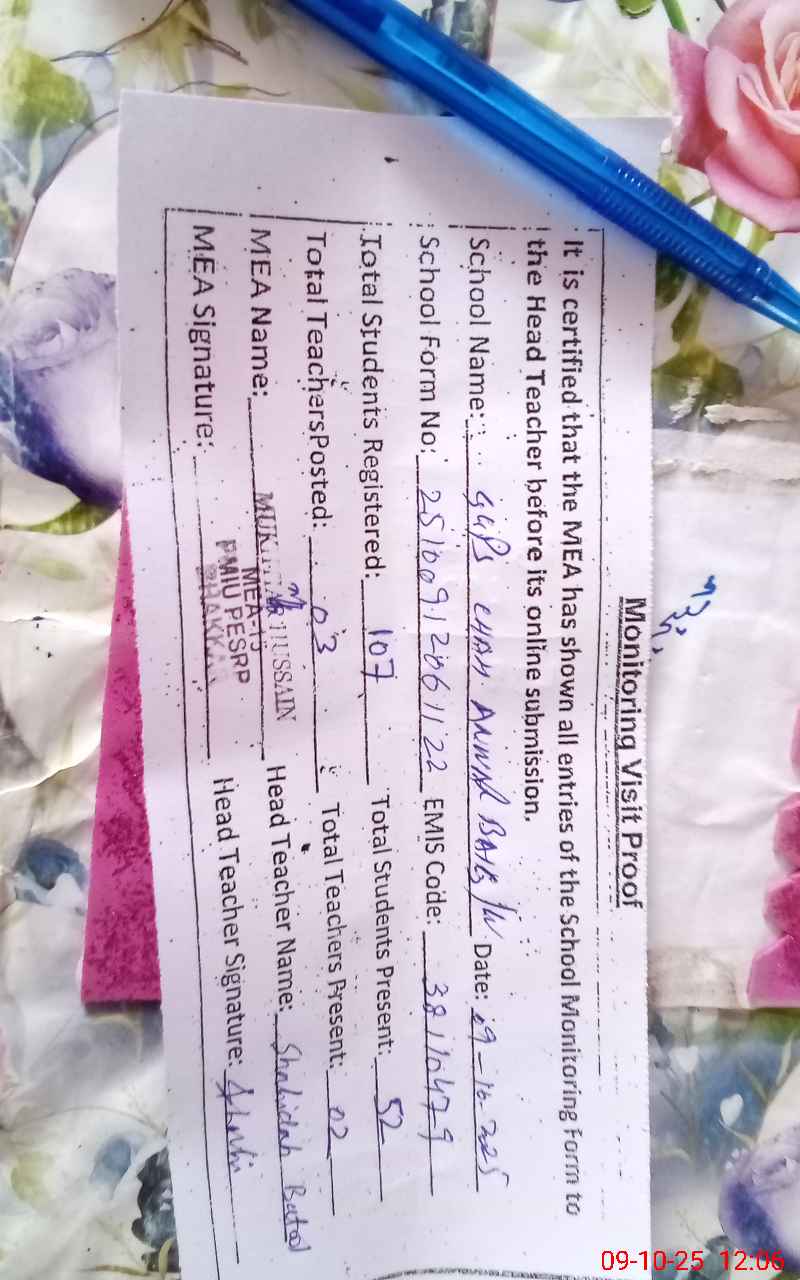 Monitoring Visit Proof
It is certified that the MEA has shown all entries of the School Monitoring Form to
the Head Teacher before its online submission.
School Name: GGPS CHAH ANWAR BAIG Date: 09-10-2025
School Form No: EMIS Code: 38110479
Total Students Registered: 107 Total Students Present: 52
Total Teachers Posted: 03 Total Teachers Present: 02
MEA Name: HUSSAIN Head Teacher Name: Shahidah Batool
MEA-15
MEA Signature: PMIU PESRP Head Teacher Signature:
BHAKKAR
09-10-25 12:06